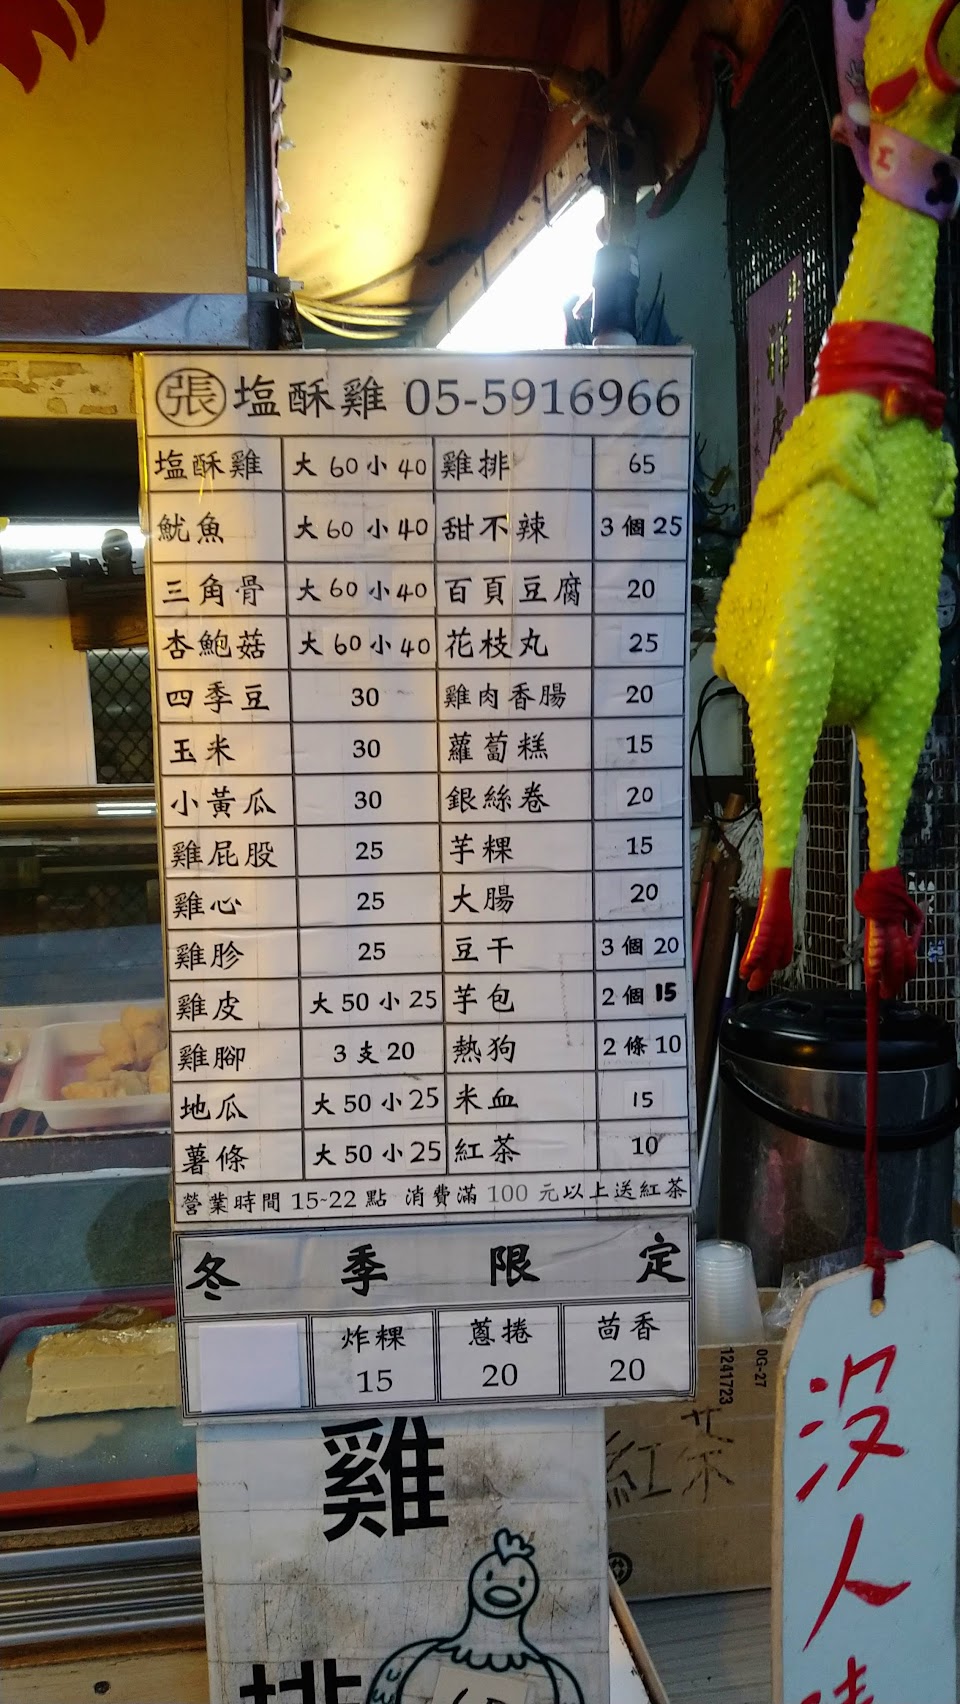 張 塩酥雞 05-5916966
塩酥雞 大 60 小 40 雞排 65
魷魚 大 60 小 40 甜不辣 3 個 25
三角骨 大 60 小 40 百頁豆腐 20
杏鮑菇 大 60 小 40 花枝丸 25
四季豆 30 雞肉香腸 20
玉米 30 蘿蔔糕 15
小黃瓜 30 銀絲卷 20
雞屁股 25 芋粿 15
雞心 25 大腸 20
雞胗 25 豆干 3 個 20
雞皮 大 50 小 25 芋包 2 個 15
雞腳 3 支 20 熱狗 2 條 10
地瓜 大 50 小 25 米血 15
薯條 大 50 小 25 紅茶 10
營業時間 15~22 點 消費滿 100 元以上送紅茶
冬季限定
炸粿 蔥捲 茴香
15 20 20
雞
排
紅茶
0G-27
1241723
沒
人